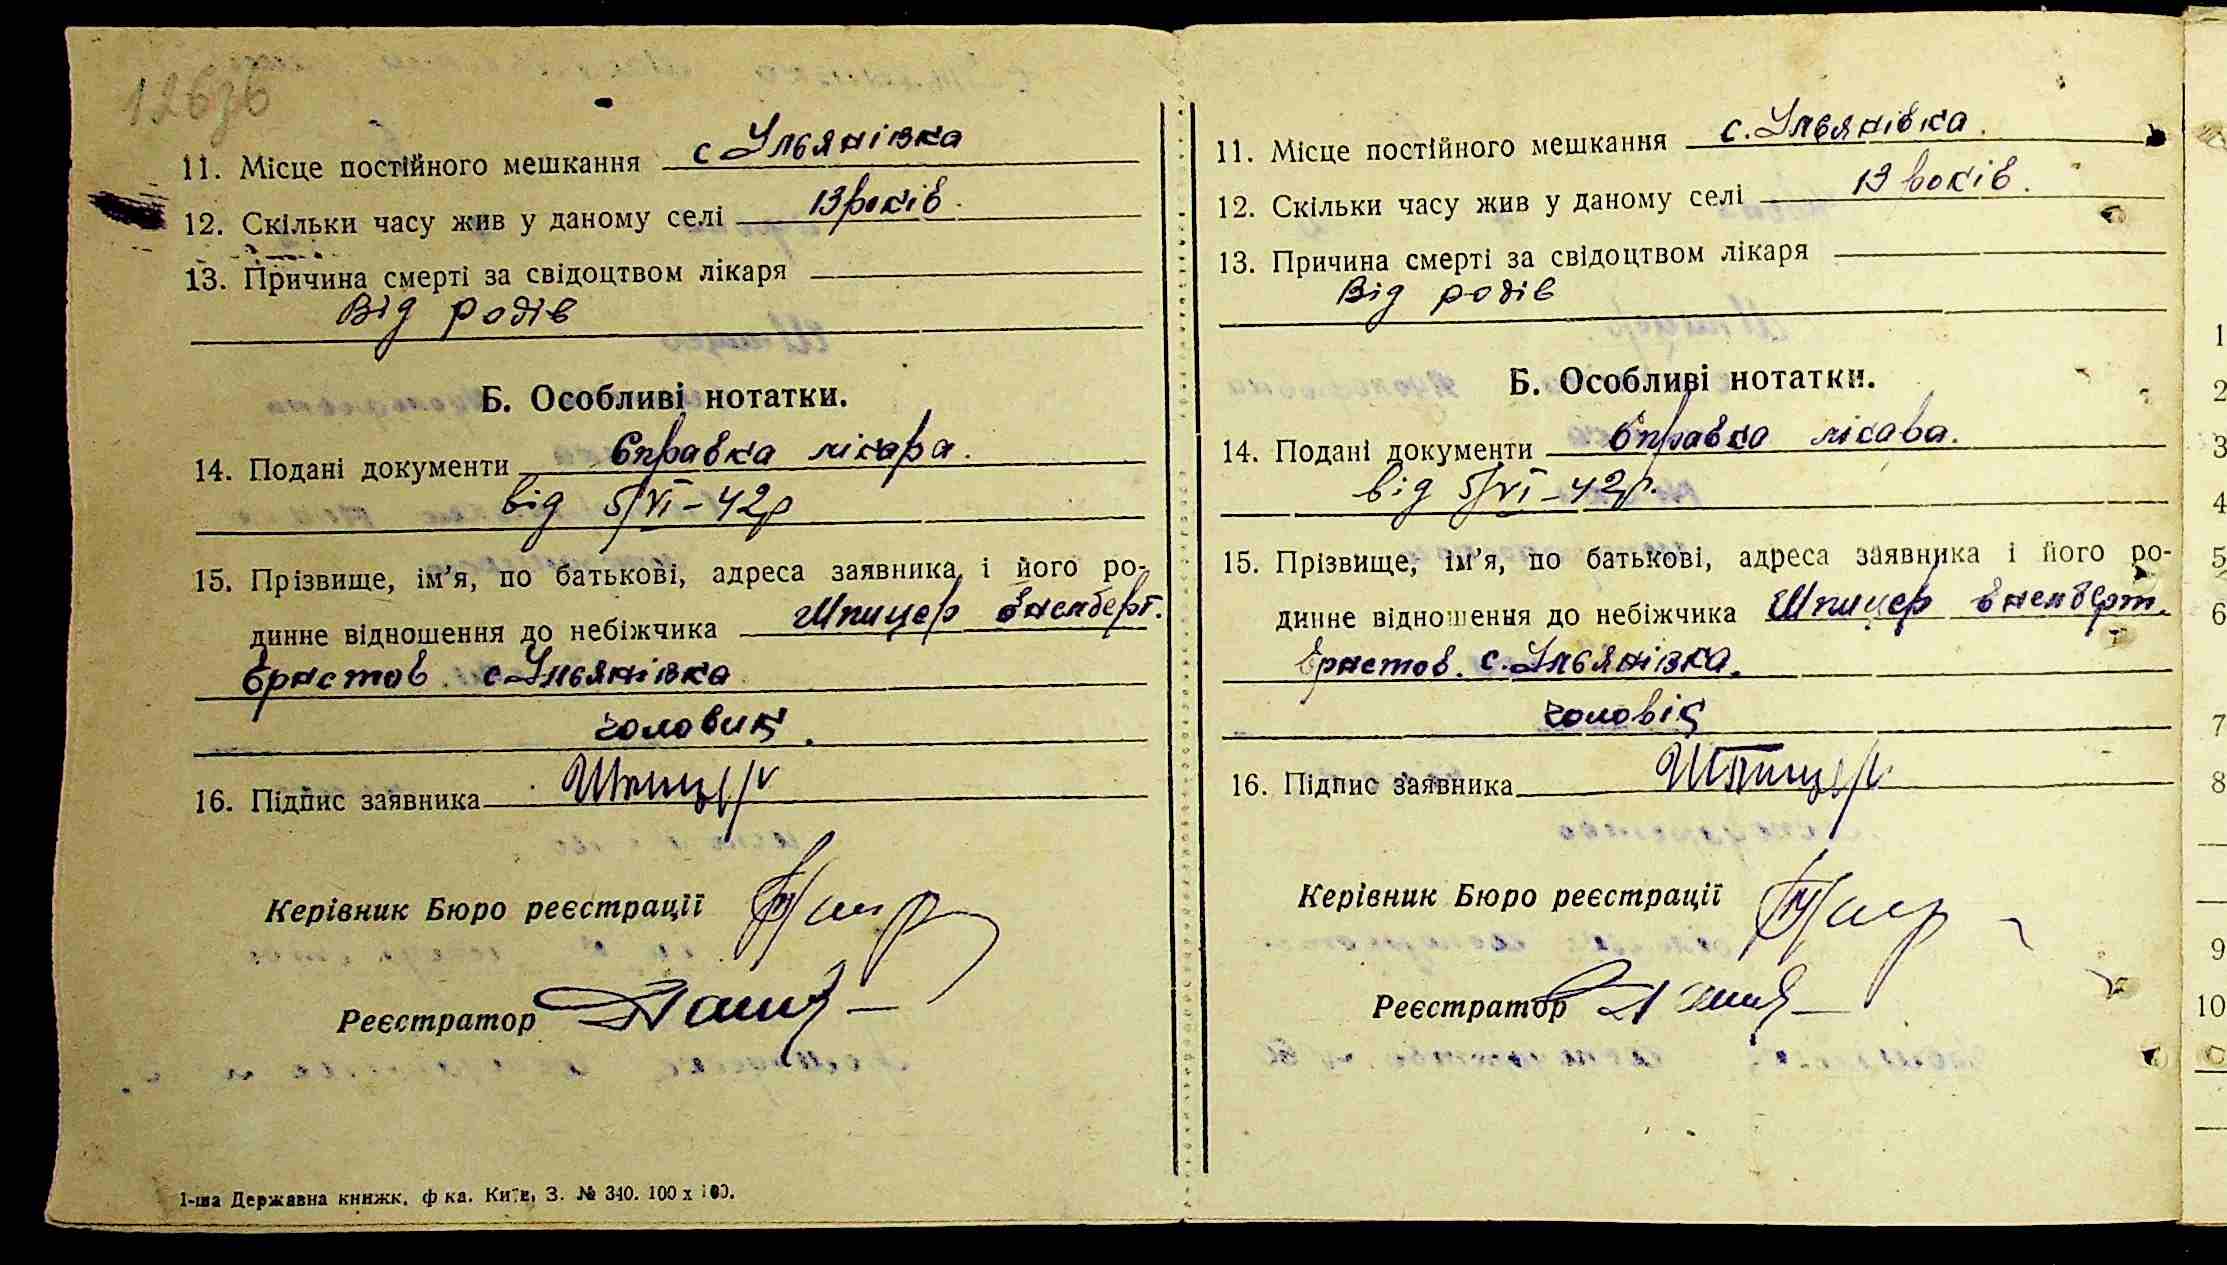 126зв
11. Місце постійного мешкання с Ульянівка
12. Скільки часу жив у даному селі 13 років.
13. Причина смерті за свідоцтвом лікаря
Від родів
Б. Особливі нотатки.
14. Подані документи Справка лікара.
від 5/VI-42р
15. Прізвище, ім'я, по батькові, адреса заявника і його ро-
динне відношення до небіжчика Шпицер Энгелберт.
Ернстов. с. Ульянівка
чоловик.
16. Підпис заявника Шпицер
Керівник Бюро реєстрації
Реєстратор
1-ша Державна книжк. ф-ка. Київ, З. № 340. 100 х 100.
11. Місце постійного мешкання с. Ульянівка.
12. Скільки часу жив у даному селі 13 років.
13. Причина смерті за свідоцтвом лікаря
Від родів
Б. Особливі нотатки.
14. Подані документи Справка лікара.
від 5/VI-42р.
15. Прізвище, ім'я, по батькові, адреса заявника і його ро-
динне відношення до небіжчика Шпицер
Ернстов. с. Ульянівка.
чоловік
16. Підпис заявника Шпицер
Керівник Бюро реєстрації
Реєстратор
1
2
3
4
5
6
7
8
9
10